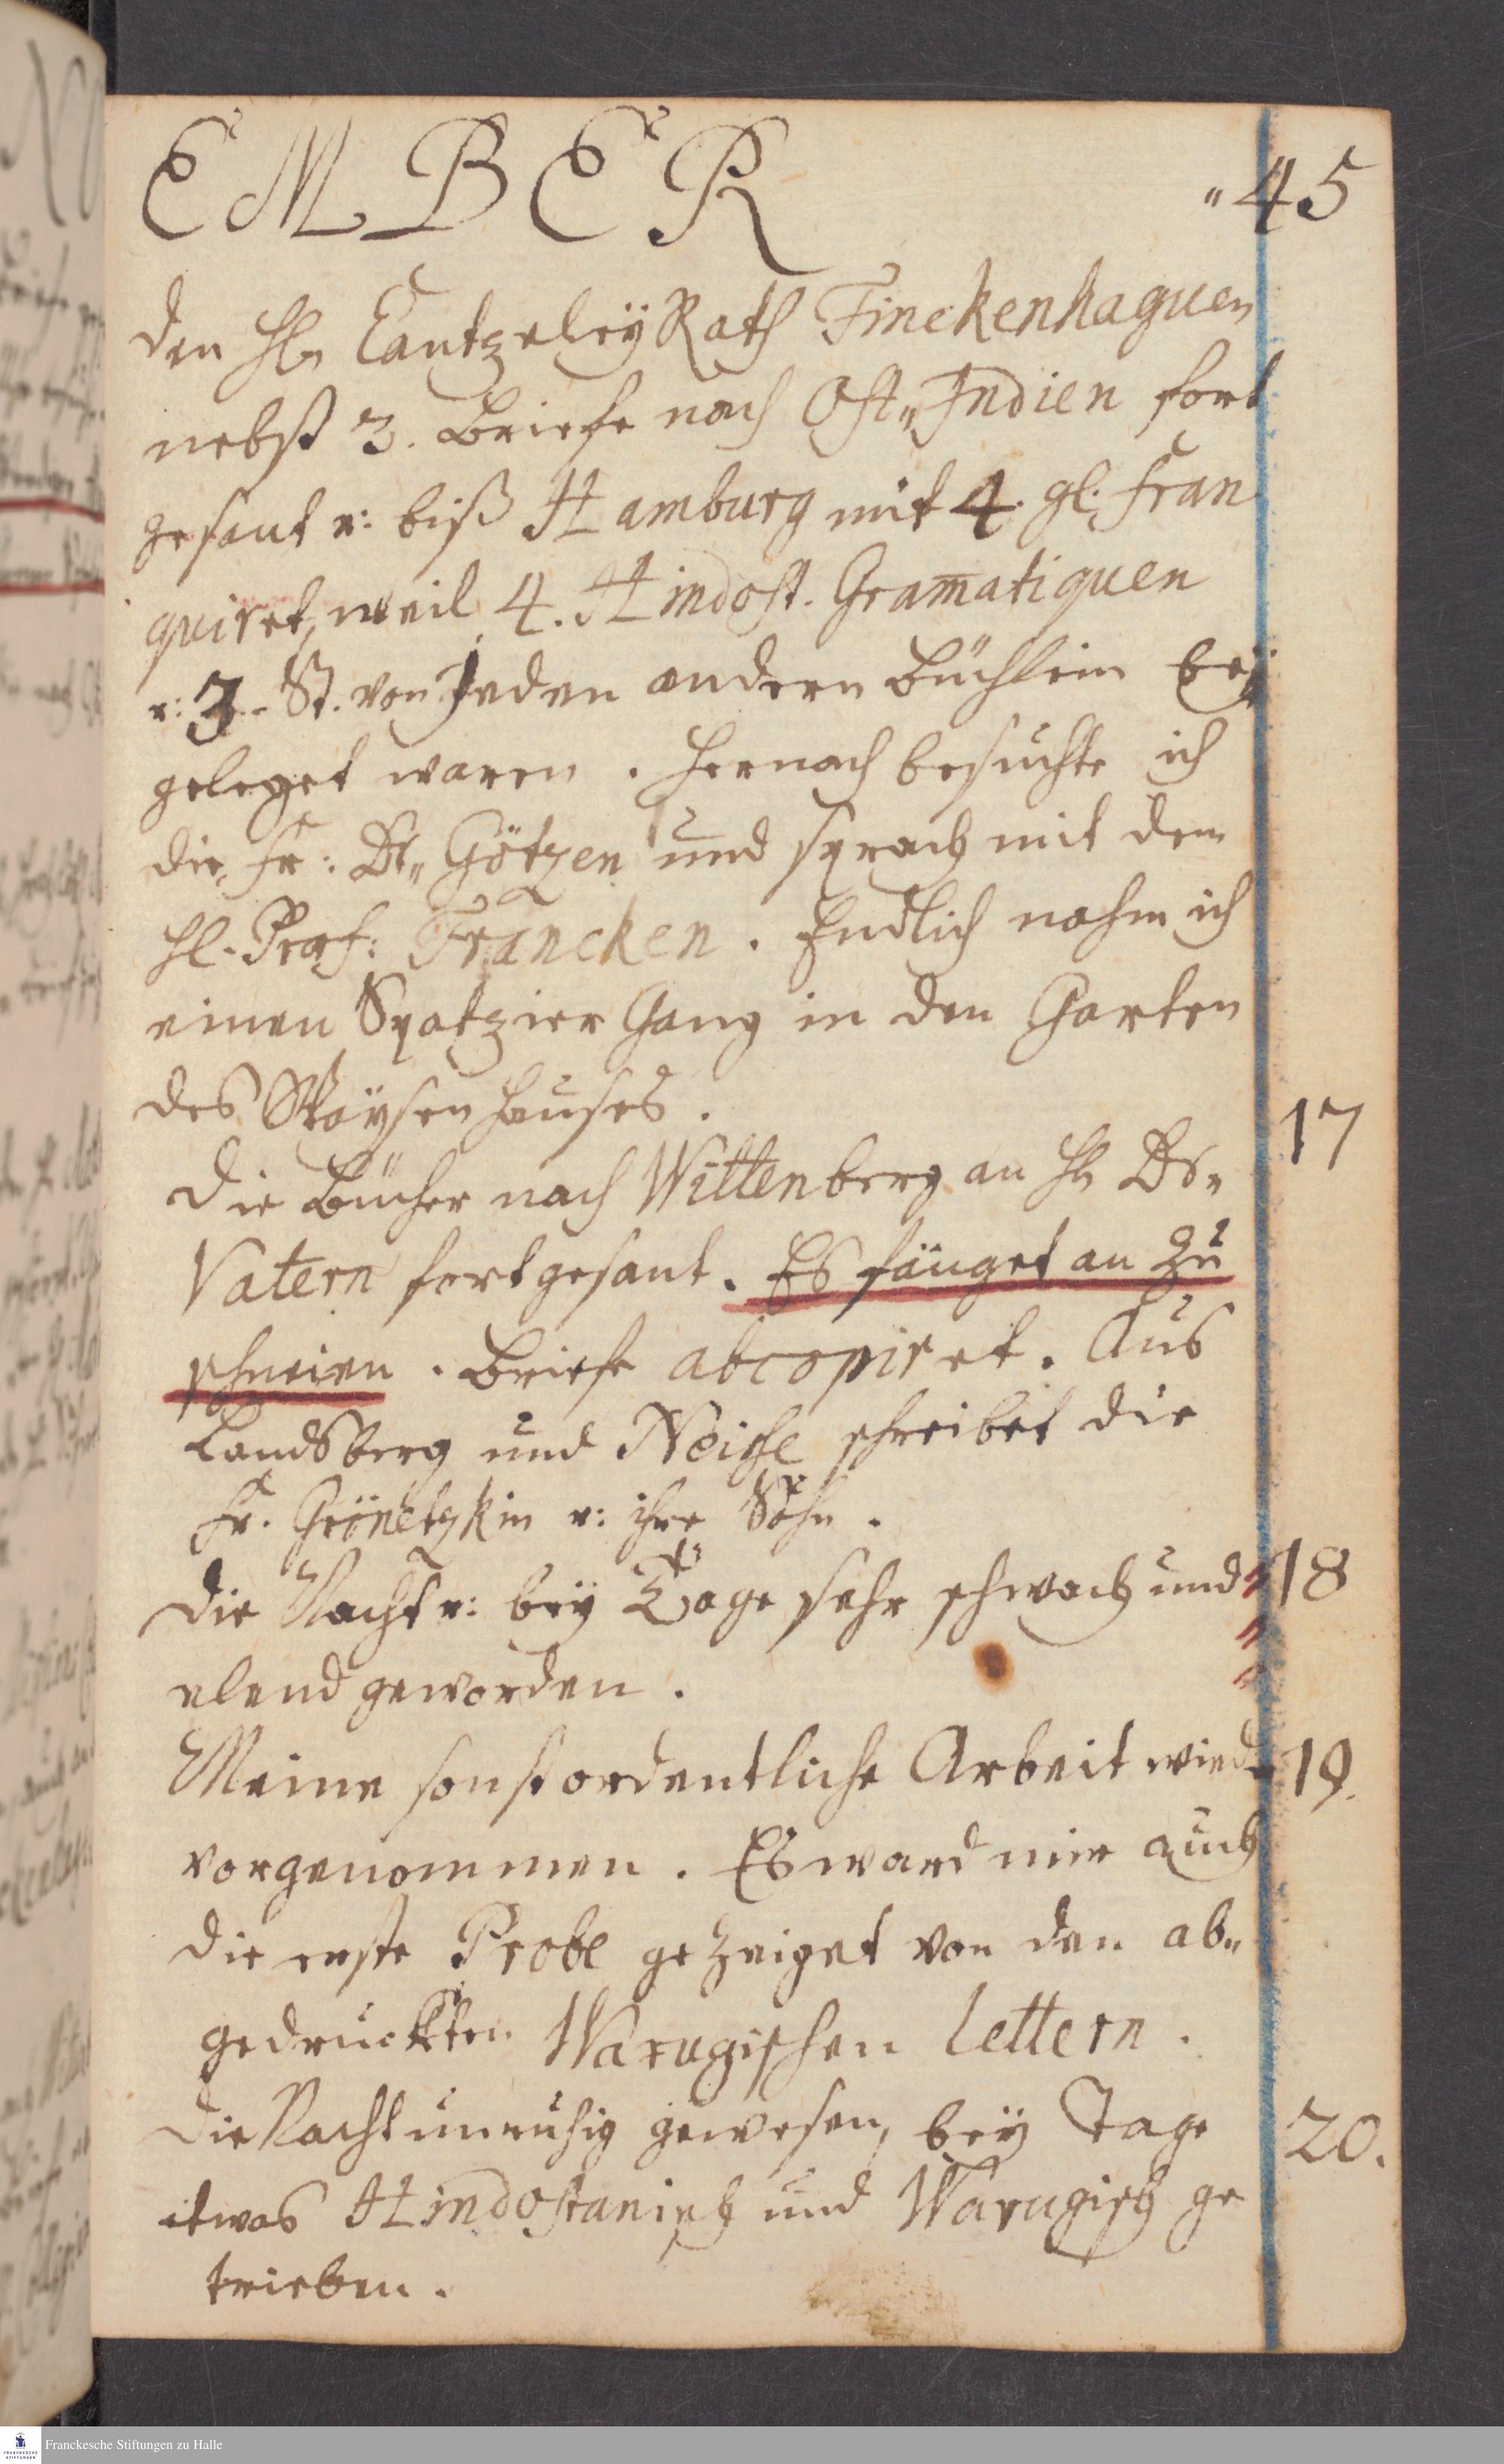 EMBER
"45
den Hl. Cantzeley Rath Finckenhaguen
nebst 3. Briefe nach Ost„Indien fort
gesant u: biß Hamburg mit 4. gl. fran
quiret, weil 4. Hindost. Gram̅atiquen
u: 3. St. von Jeden andern Büchlein bey
geleget waren. Hernach besuchte ich
die Fr: Dr„ Götzen und sprach mit dem
Hl. Prof: Francken. Endlich nahm ich
einen Spatzier Gang in den Garten
des Waysenhauses.
17
Die Bücher nach Wittenberg an Hl. Dr„
Vatern fortgesant. Es fänget an zu
schneien. Briefe abcopiret. Aus
Landsberg und Neiße schreibet die
Fr. Grönetzkin u: ihre Söhn.
Die Nacht u: bey Tage sehr schwach und 18
elend geworden.
Meine sonst ordentliche Arbeit wied. 19.
vorgenommen. Es ward mir auch
die erste Probe gezeiget von den ab„
gedruckten Warugischen Lettern.
Die Nacht unruhig gewesen, bey Tage 20.
etwas Hindostanisch und Warugisch ge
trieben.
Franckesche Stiftungen zu Halle